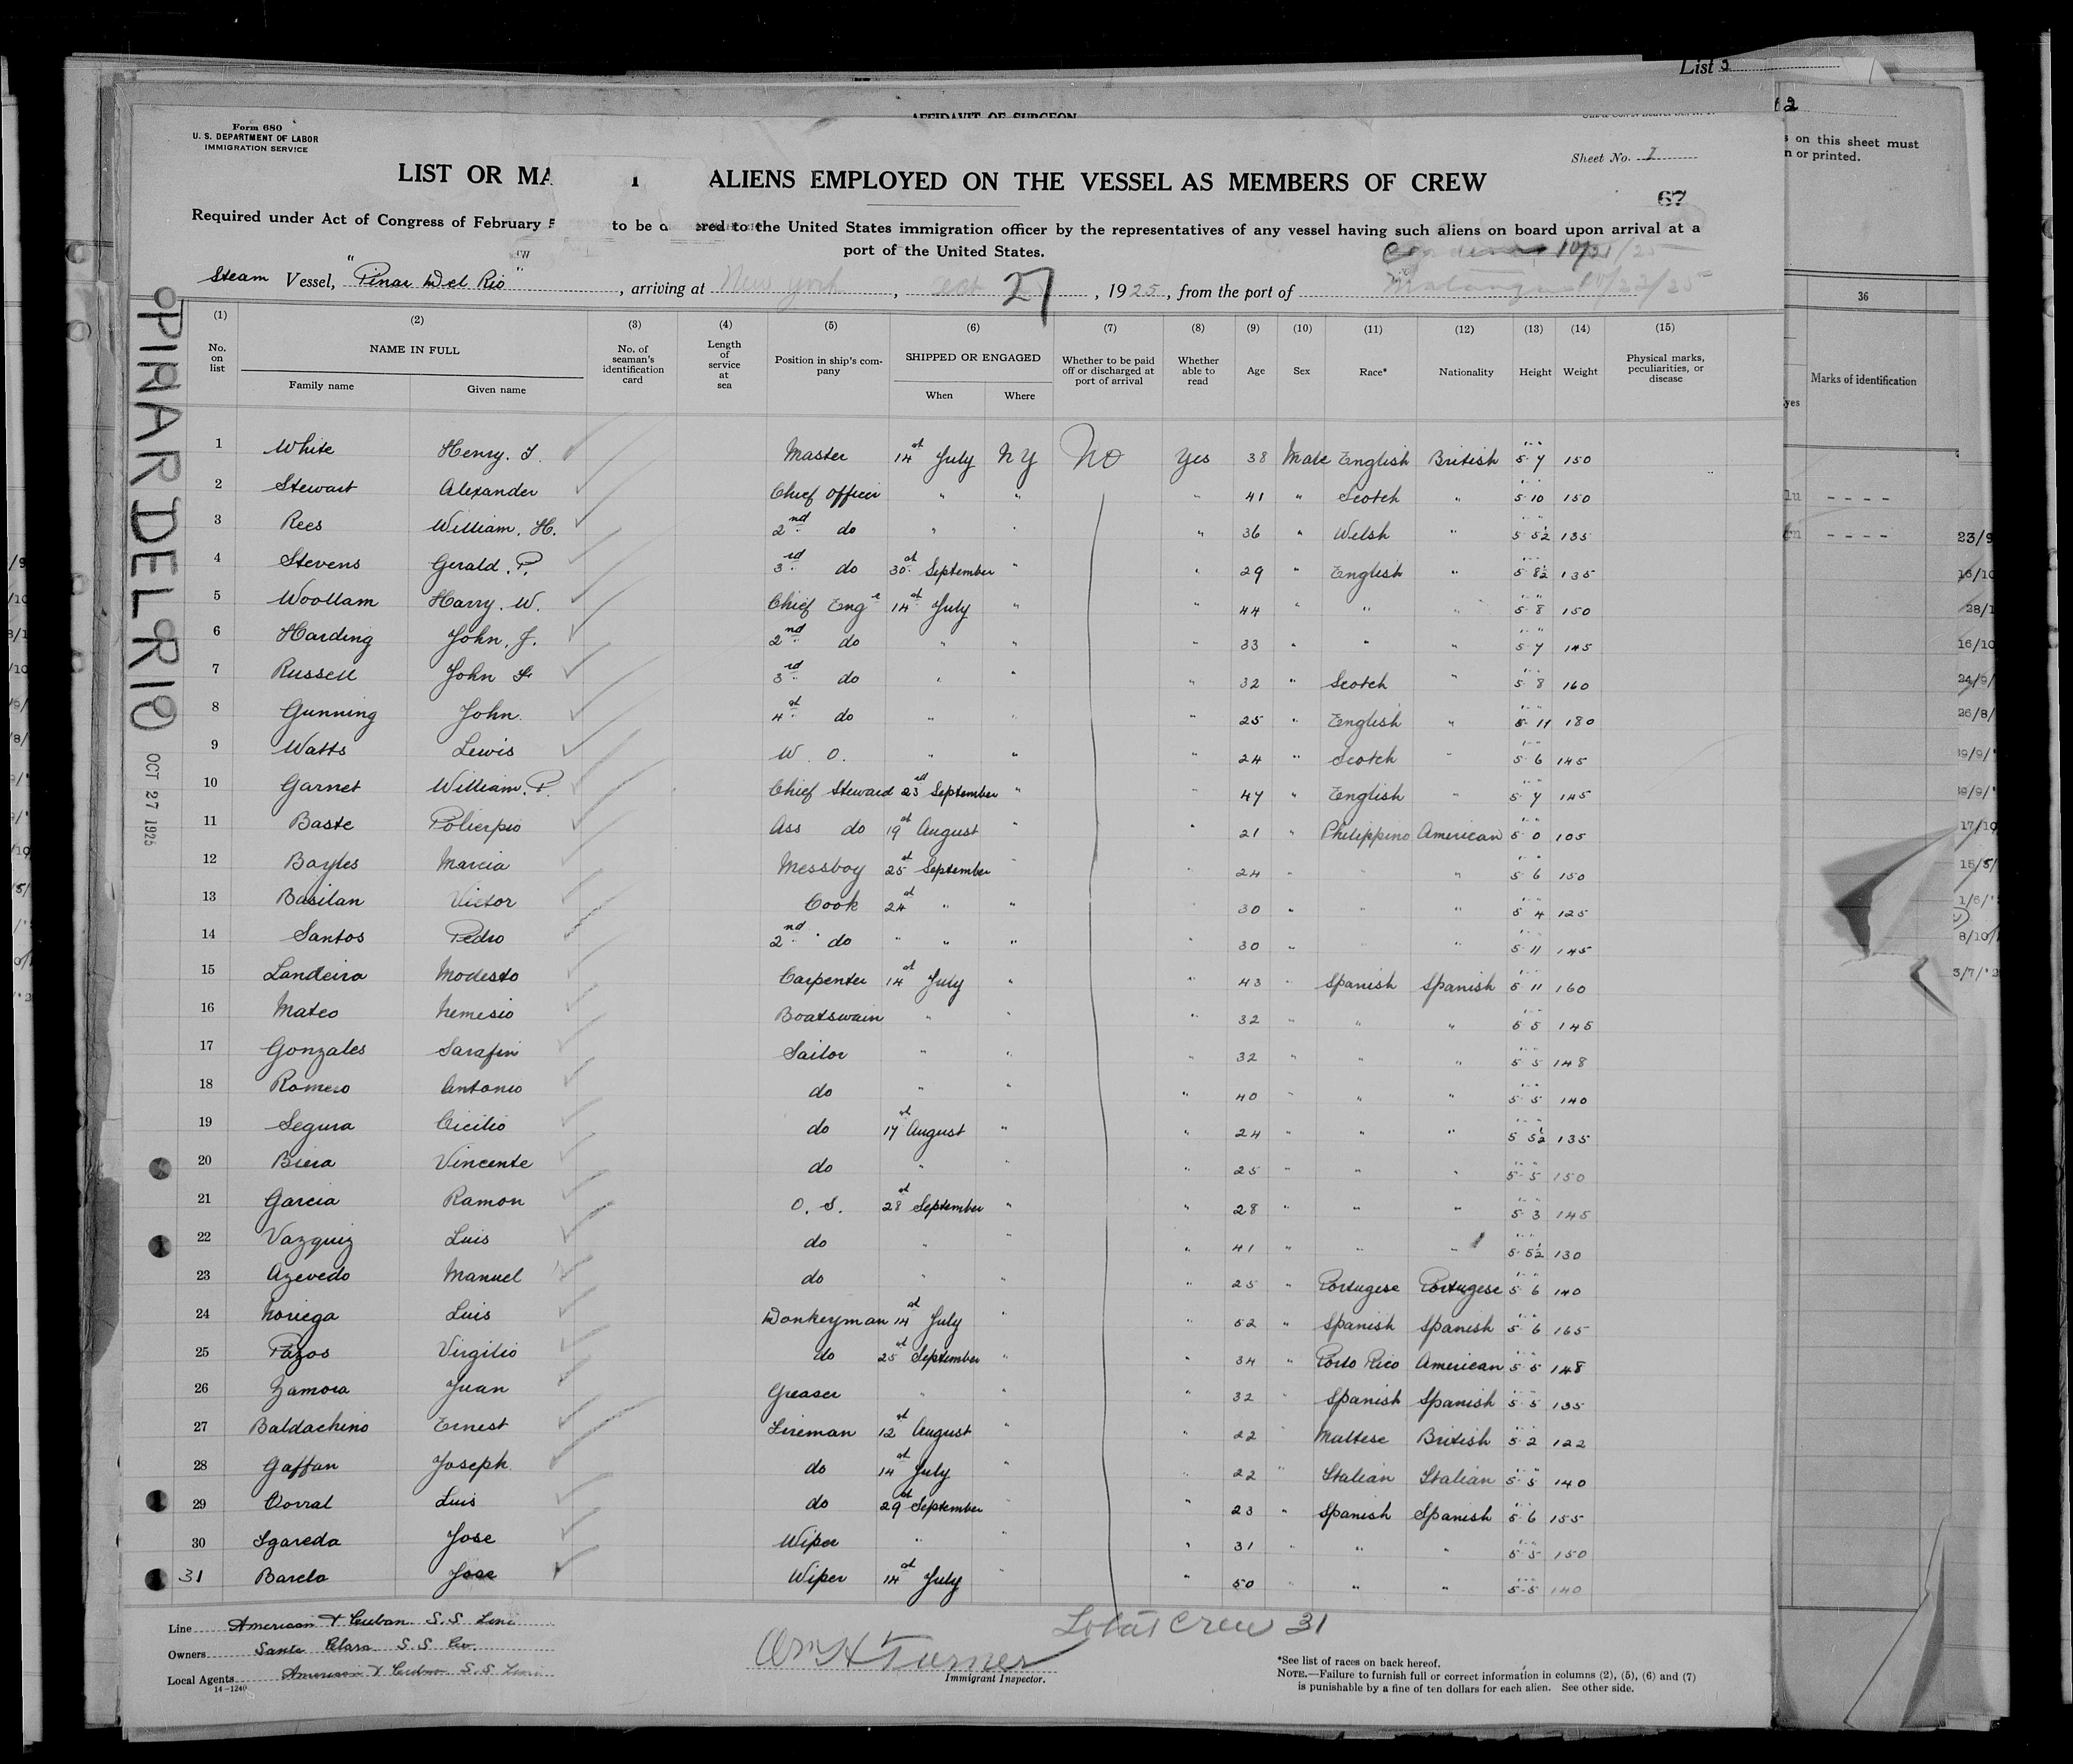 List 3
62
AFFIDAVIT OF SURGEON
Form 680
U. S. DEPARTMENT OF LABOR
IMMIGRATION SERVICE
s on this sheet must
n or printed.
Sheet No. 1
LIST OR MA ALIENS EMPLOYED ON THE VESSEL AS MEMBERS OF CREW
67
Required under Act of Congress of February 5 to be d ered to the United States immigration officer by the representatives of any vessel having such aliens on board upon arrival at a
port of the United States.
10/21/25
Steam Vessel, "Pinar Del Rio", arriving at New York, Oct 27, 1925, from the port of Matanzas 10/22/25
PINAR DEL RIO
OCT 27 1925
(1) (2) (3) (4) (5) (6) (7) (8) (9) (10) (11) (12) (13) (14) (15)
No. on list NAME IN FULL Family name Given name No. of seaman's identification card Length of service at sea Position in ship's company SHIPPED OR ENGAGED When Where Whether to be paid off or discharged at port of arrival Whether able to read Age Sex Race* Nationality Height Weight Physical marks, peculiarities, or disease
36
Marks of identification
yes
1 White Henry. T. Master 14st July N Y No Yes 38 Male English British 5' 7" 150
2 Stewart Alexander Chief Officer " " " 41 " Scotch " 5' 10" 150
3 Rees William. H. 2nd do " " " 36 " Welsh " 5' 5½" 135
4 Stevens Gerald. P. 3rd do 30st September " " 29 " English " 5' 8½" 135
5 Woollam Harry. W. Chief Engr 14st July " " 44 " " " 5' 8" 150
6 Harding John. J. 2nd do " " " 33 " " " 5' 7" 145
7 Russell John 3rd do " " " 32 " Scotch " 5' 8" 160
8 Gunning John. 4st do " " " 25 " English " 5' 11" 180
9 Watts Lewis W. O. " " " 24 " Scotch " 5' 6" 145
10 Garnet William. P. Chief Steward 23rd September " " 47 " English " 5' 7" 145
11 Baste Policrpio Ass do 19st August " " 21 " Philippino American 5' 0" 105
12 Baytes Marcia Messboy 25st September " " 24 " " " 5' 6" 150
13 Basilan Victor Cook 24st " " " 30 " " " 5' 4" 125
14 Santos Pedro 2nd do " " " " 30 " " " 5' 11" 145
15 Landeira Modesto Carpenter 14st July " " 43 " Spanish Spanish 5' 11" 160
16 Mateo Nemesio Boatswain " " " 32 " " " 5' 5" 145
17 Gonzales Sarafin Sailor " " " 32 " " " 5' 5" 148
18 Romero Antonio do " " " 40 " " " 5' 5" 140
19 Segura Cicilio do 17st August " " 24 " " " 5' 5½" 135
20 Biera Vincente do " " 25 " " " 5' 5" 150
21 Garcia Ramon O. S. 28st September " " 28 " " " 5' 3" 145
22 Vazquiz Luis do " " " 41 " " " 5' 5½" 130
23 Azevedo Manuel do " " " 25 " Portugese Portugese 5' 6" 140
24 Noriega Luis Donkeyman 14st July " " 52 " Spanish Spanish 5' 6" 165
25 Pazos Virgilio do 25st September " " 34 " Porto Rico American 5' 5" 148
26 Zamora Juan Greaser " " " 32 " Spanish Spanish 5' 5" 135
27 Baldachino Ernest Fireman 12st August " " 22 " Maltese British 5' 2" 122
28 Gaffan Joseph. do 14st July " " 22 " Italian Italian 5' 5" 140
29 Corral Luis do 29st September " " 23 " Spanish Spanish 5' 6" 155
30 Igareda Jose Wiper " " " 31 " " " 5' 5" 150
31 Barcla Jose Wiper 14st July " " 50 " " " 5' 5" 140
Total Crew 31
Line American & Cuban S.S Line
Owners Santa Clara S S Co.
Local Agents American & Cuban S S Line
14-1240
Wm H Turner
Immigrant Inspector.
*See list of races on back hereof.
NOTE.—Failure to furnish full or correct information in columns (2), (5), (6) and (7)
is punishable by a fine of ten dollars for each alien. See other side.